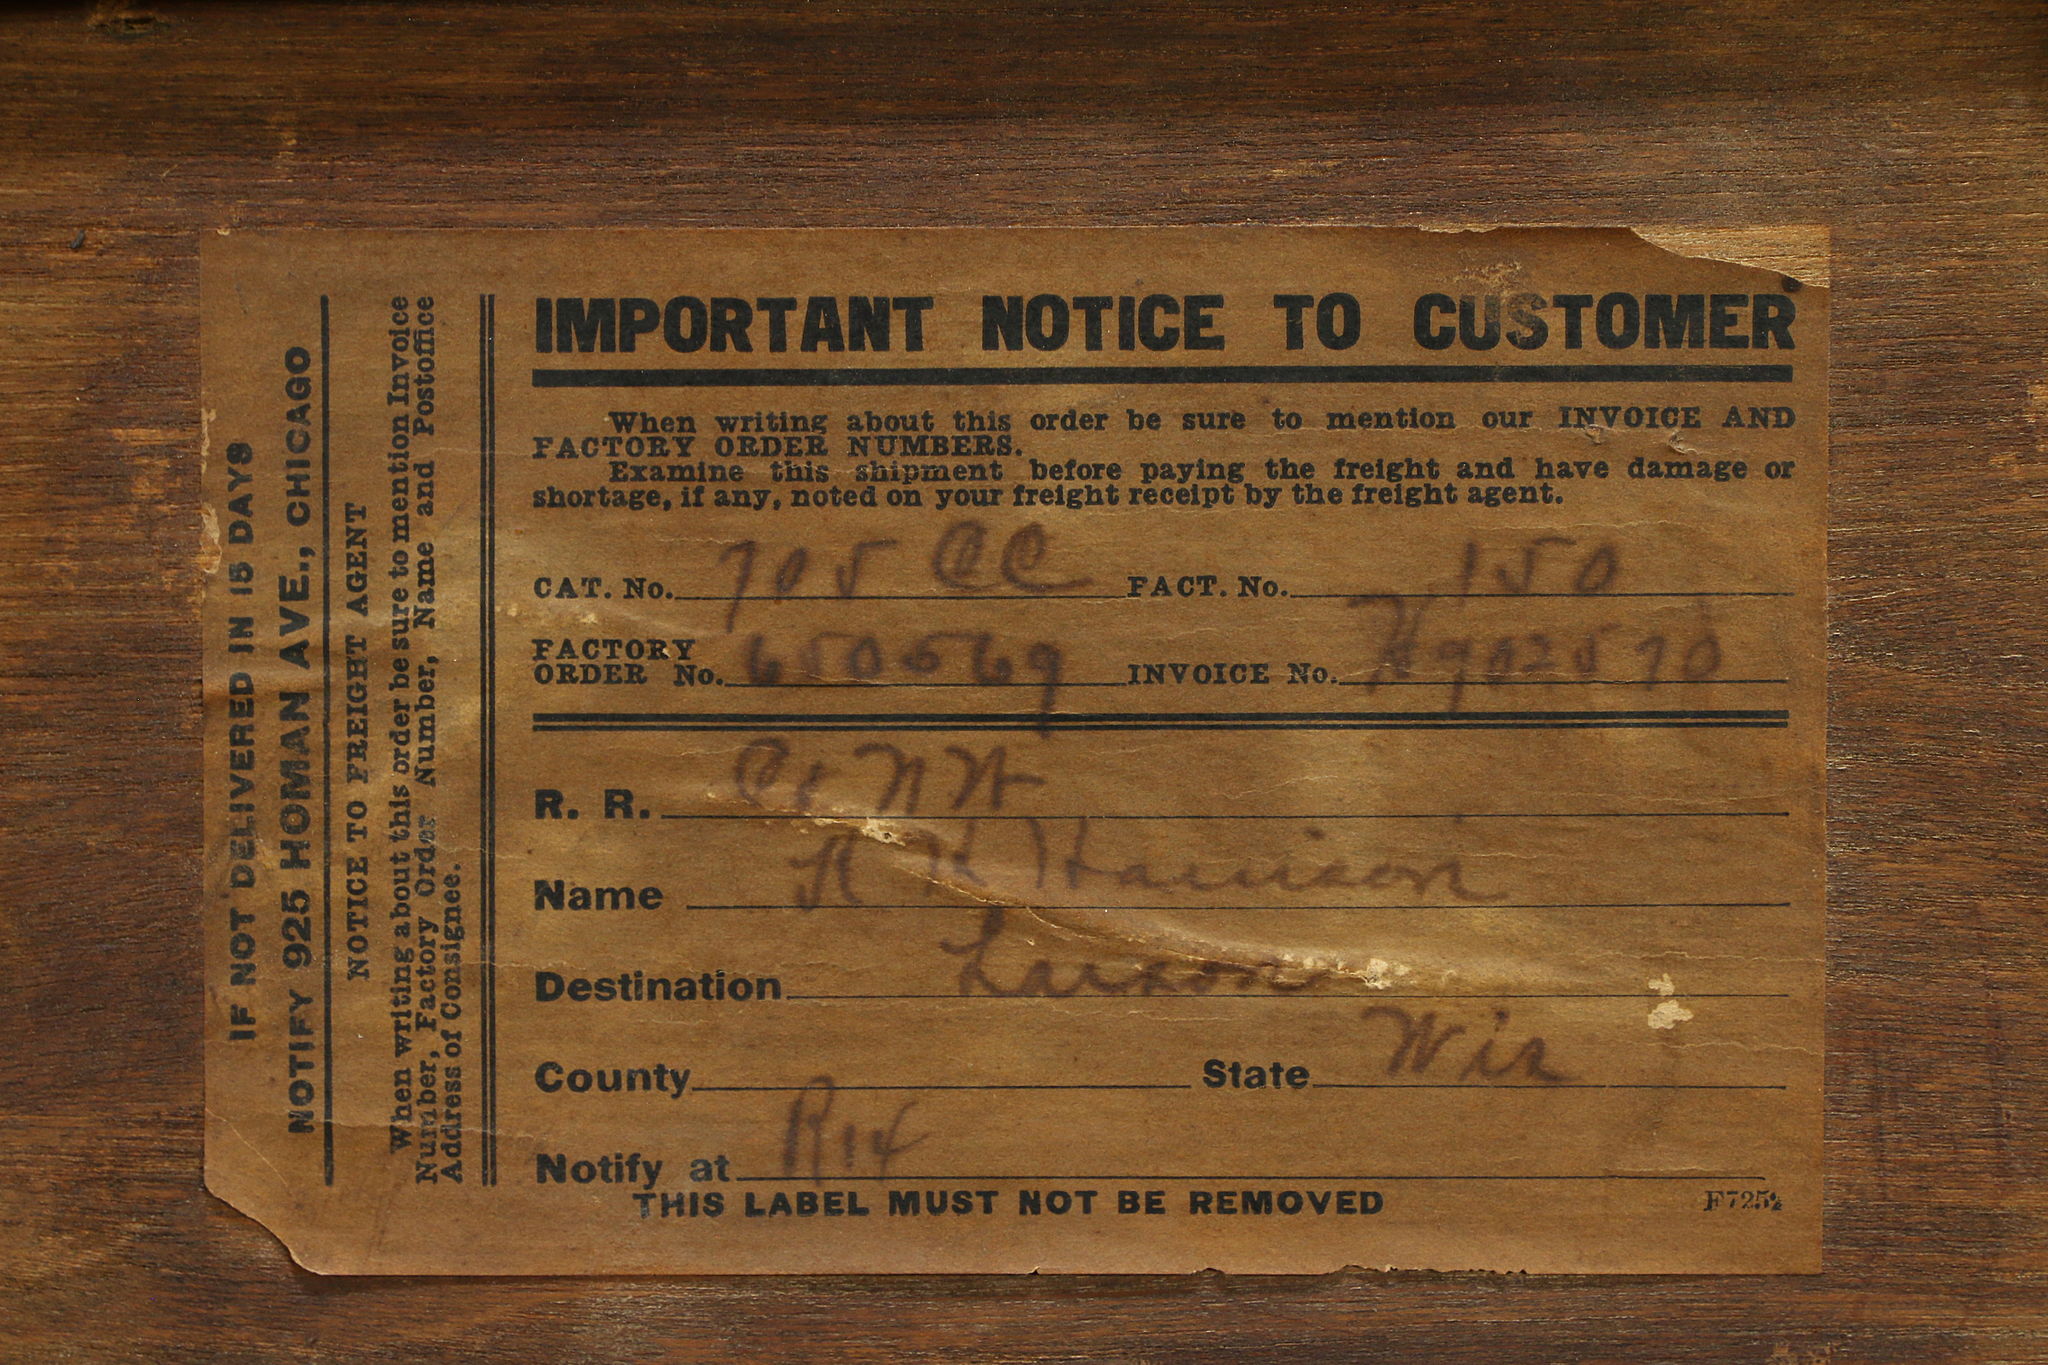 IMPORTANT NOTICE TO CUSTOMER
When writing about this order be sure to mention our INVOICE AND
FACTORY ORDER NUMBERS.
Examine this shipment before paying the freight and have damage or
shortage, if any, noted on your freight receipt by the freight agent.
CAT. No. 705 CC FACT. No. 150
FACTORY
ORDER No. 650569 INVOICE No.
R. R. C & NW
Name R H Harrison
Destination Larson
County State Wis
Notify at
THIS LABEL MUST NOT BE REMOVED
F725½
IF NOT DELIVERED IN 15 DAYS
NOTIFY 925 HOMAN AVE., CHICAGO
NOTICE TO FREIGHT AGENT
When writing about this order be sure to mention Invoice
Number, Factory Order Number, Name and Postoffice
Address of Consignee.